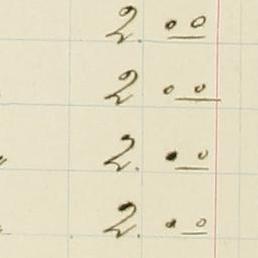 2. 00
2 00
2. 00
2. 00